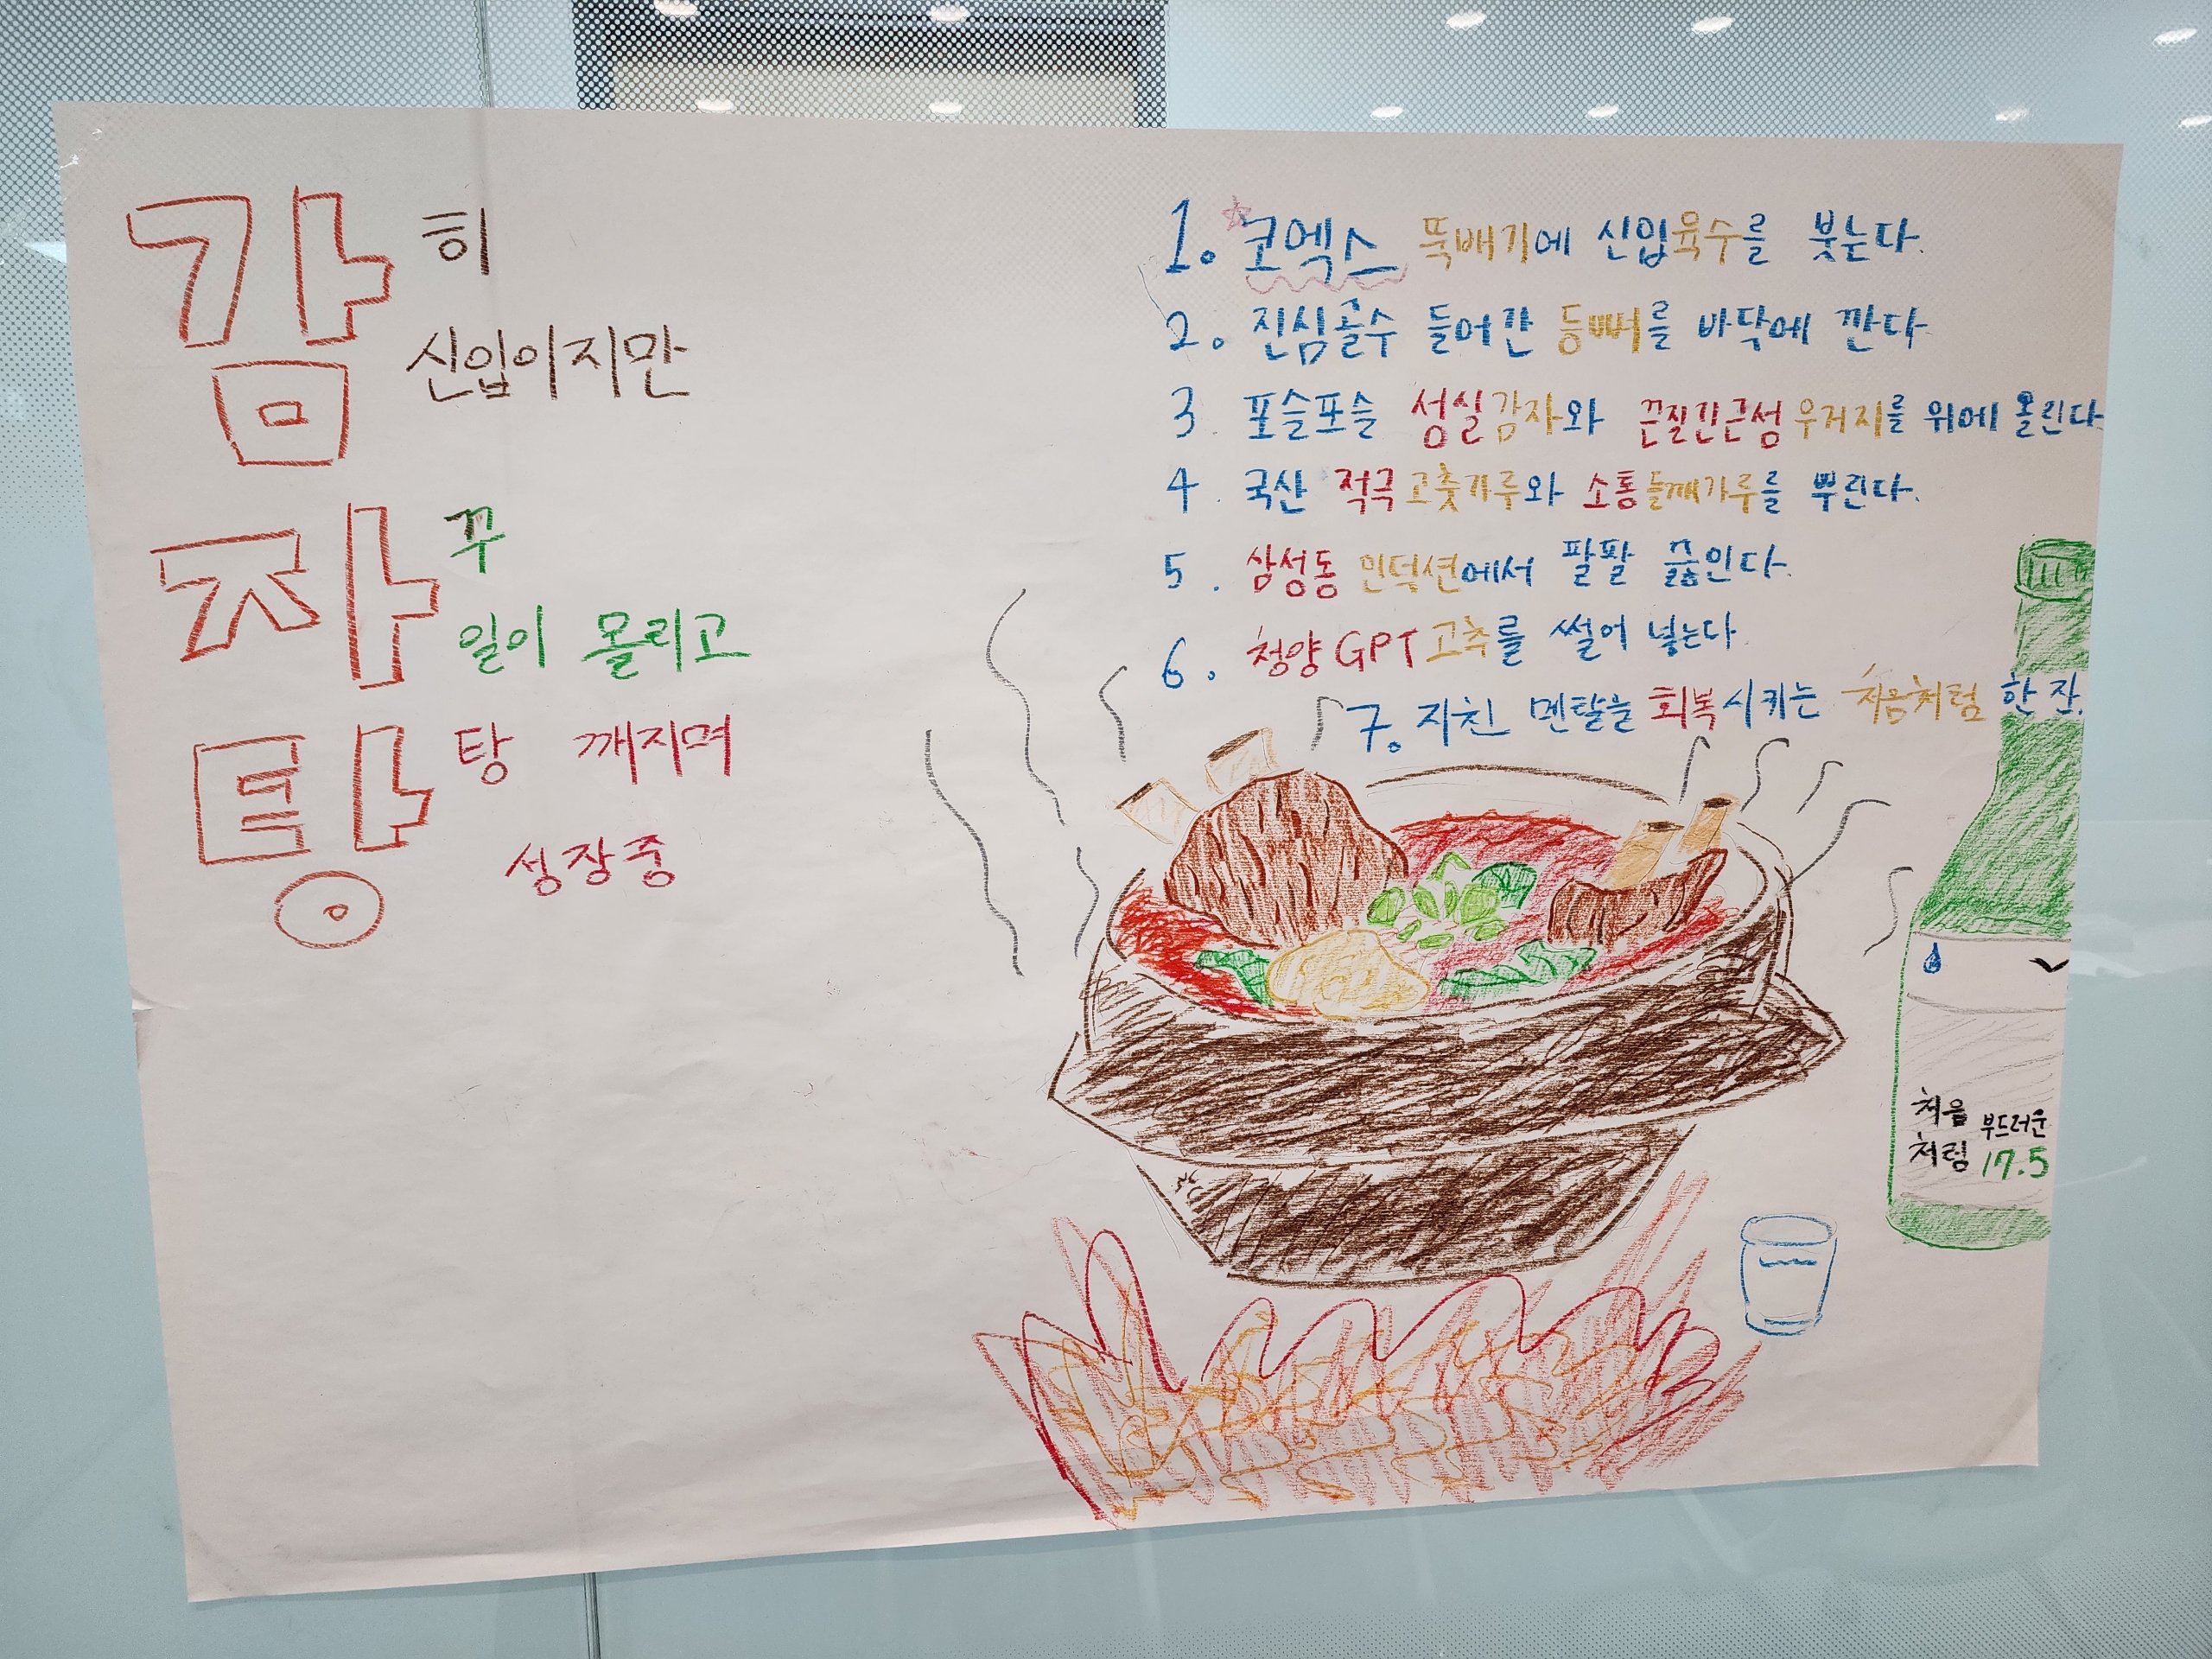 감히
신입이지만
자꾸
일이 몰리고
탕 탕 깨지며
성장중
1. 코엑스 뚝배기에 신입육수를 붓는다.
2. 진심골수 들어간 등뼈를 바닥에 깐다
3. 포슬포슬 성실감자와 끈질긴근성우거지를 위에 올린다
4. 국산 적극고춧가루와 소통들깨가루를 뿌린다.
5. 삼성동 인덕션에서 팔팔 끓인다.
6. 청양GPT고추를 썰어 넣는다
7. 지친 멘탈을 회복시키는 처음처럼 한 잔.
처음
처럼
부드러운
17.5